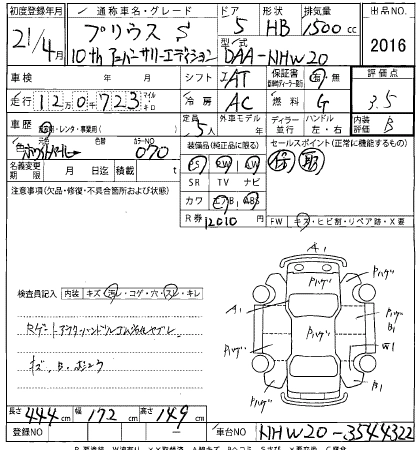 初度登録年月 通称車名・グレード ドア 形状 排気量 出品NO
21/4月 プリウス S 5 HB 1500cc 2016
10th アニバーサリーエディション 型式 DAA-NHW20
車検 年 月 シフト IAT 保証書 有・無 評価点
走行 12万0千723 マイル キロ 冷房 AC 燃料 G 3.5
車歴 自家用・レンタ・事業用( ) 定員 5人 外車モデル 年 ディーラー 並行 ハンドル 左・右 内装評価 B
色 元色 ホワイトパール 色替 カラーNO 070 装備品(純正品に限る) セールスポイント(正常に機能するもの)
名義変更期限 月 日迄 積載 t PS PW AW 保 取
注意事項(欠品・修復・不具合箇所および状態) SR TV ナビ
カワ エアB ABS
R券 12010円 FW キズ・ヒビ割・リペア跡・X要
検査員記入 内装 キズ・汚レ・コゲ・穴・スレ・キレ
A1
Pハゲ Pハゲ
A1 Pハゲ B1
Pハゲ W1
Pハゲ B1
長さ 444cm 幅 172cm 高さ 149cm
登録NO — 車台NO NHW20-3544322